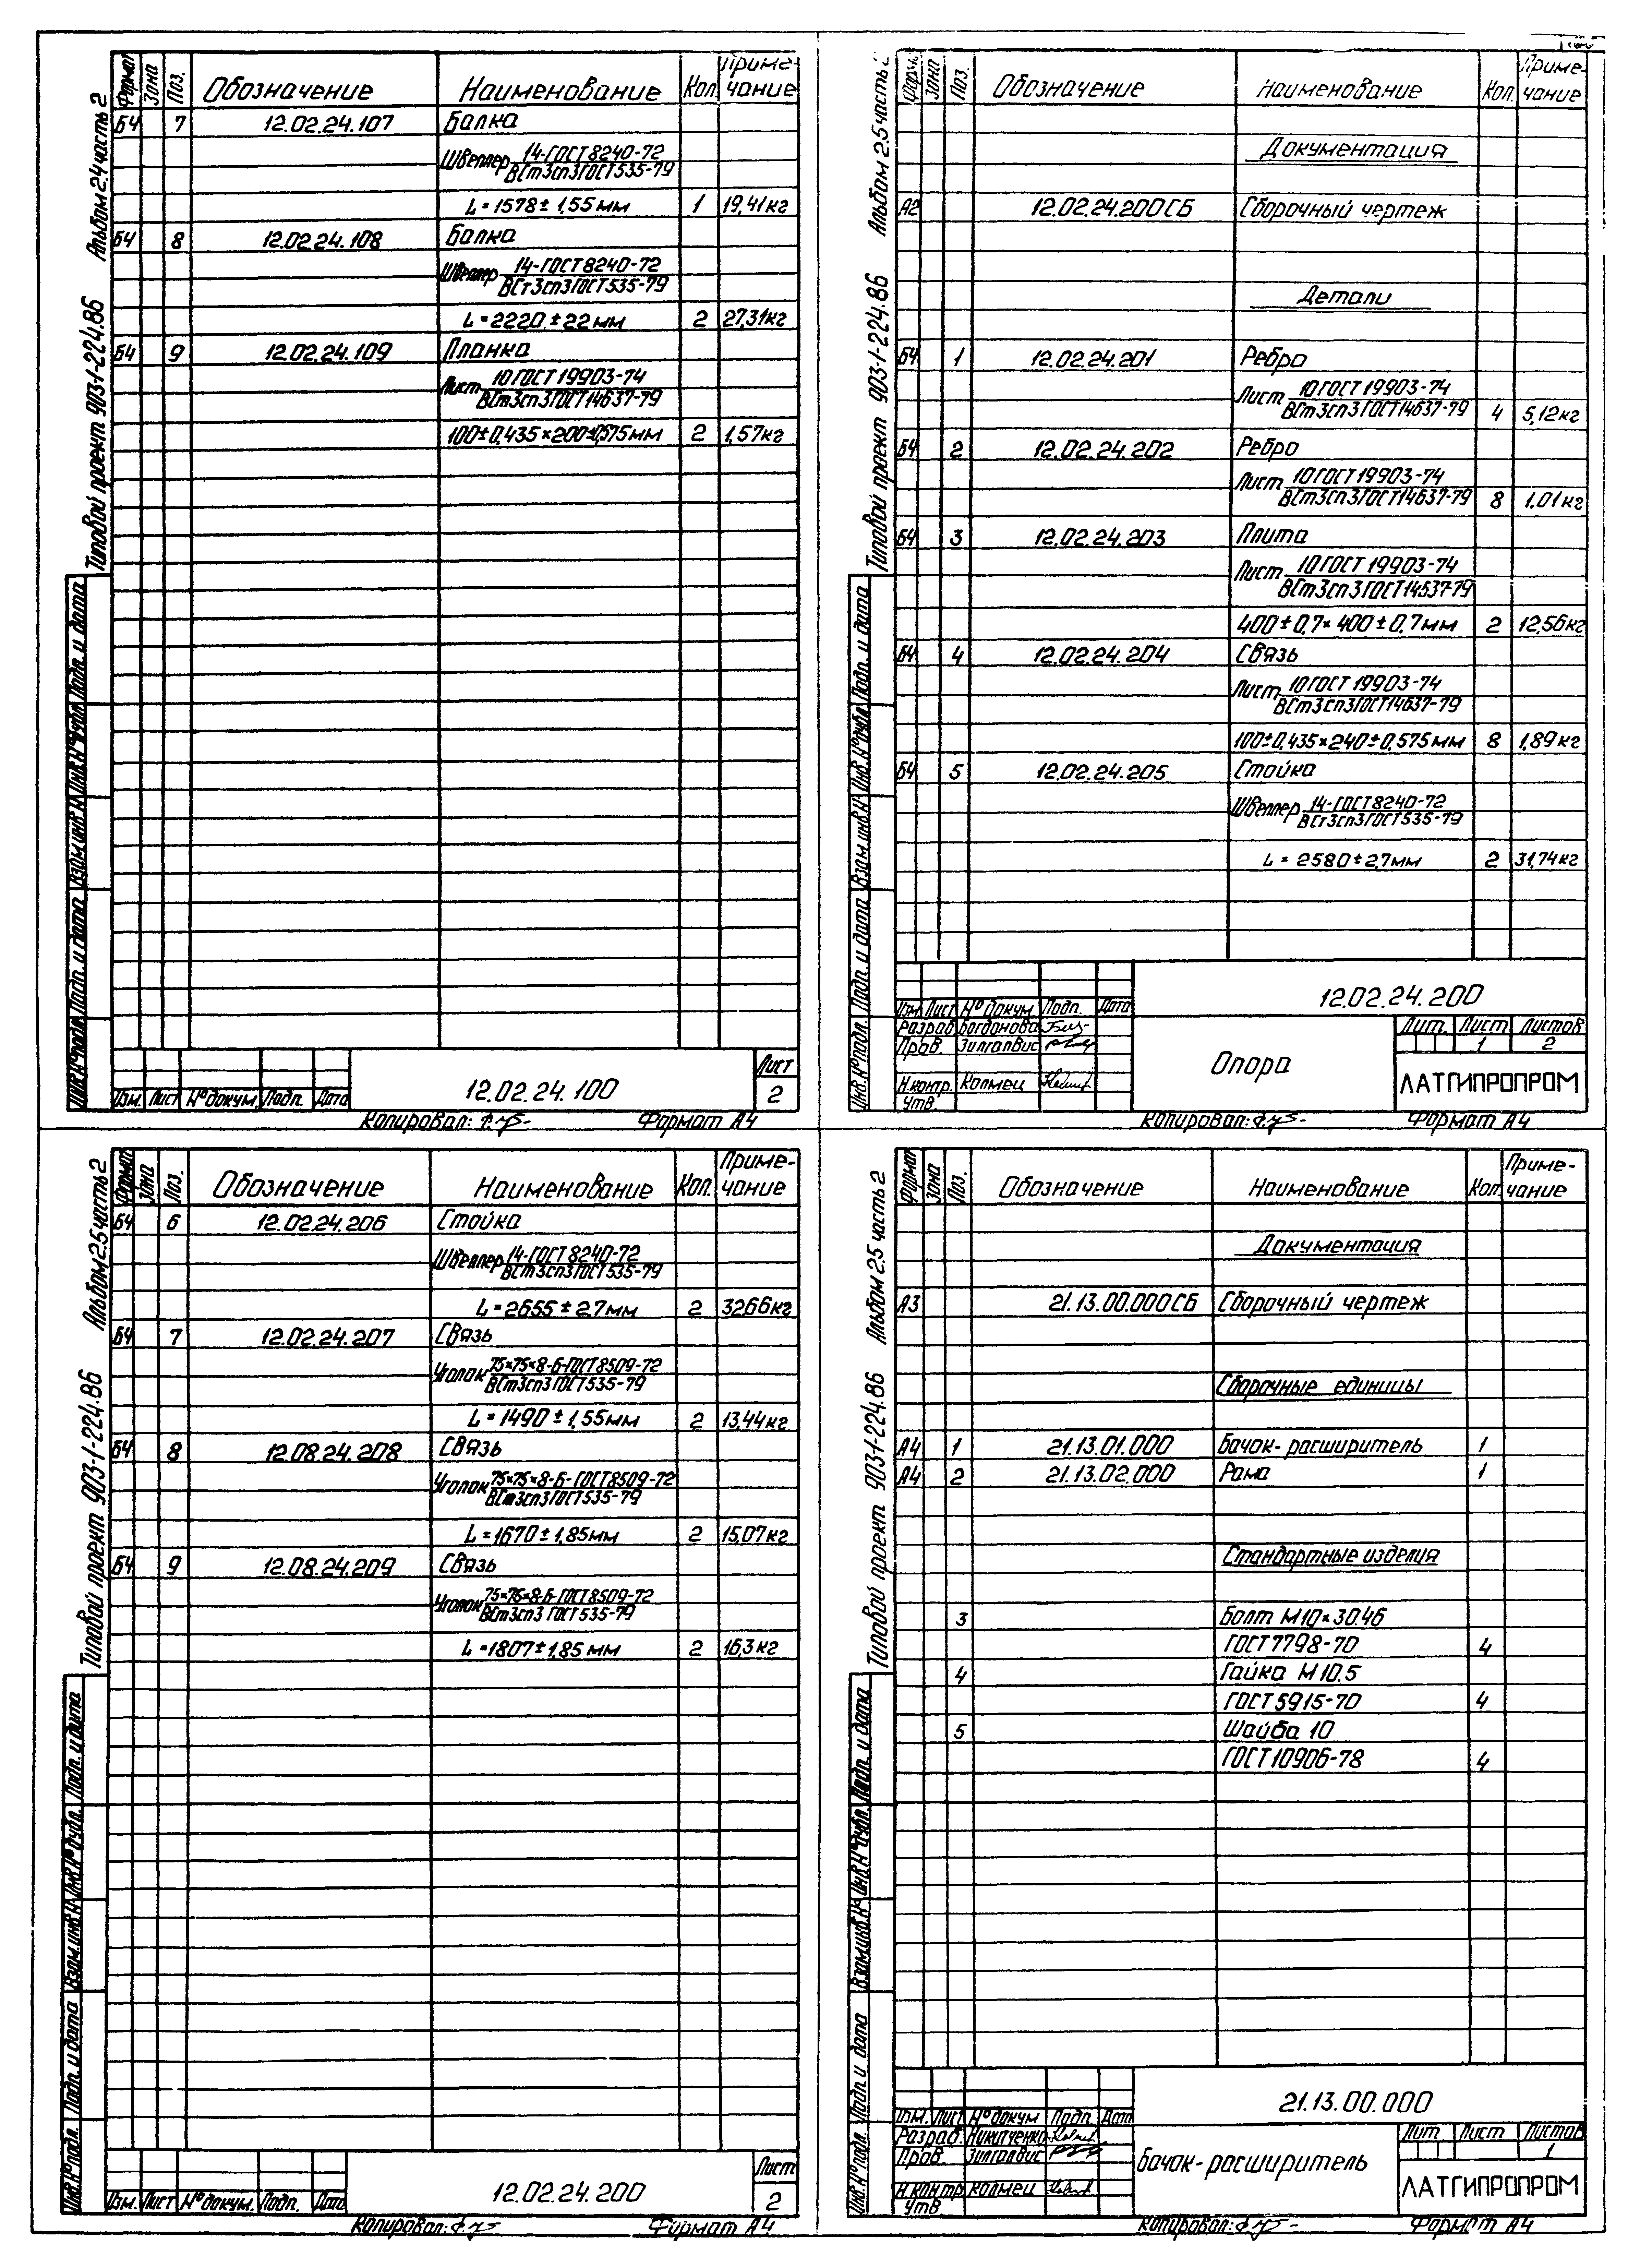 Типовой проект 903-1-224.86 Альбом 2.4 часть 2
Формат Зона Поз. Обозначение Наименование Кол. Приме-
чание
БЧ 7 12.02.24.107 Балка
Швеллер 14-ГОСТ 8240-72
ВСт3сп3 ГОСТ 535-79
L = 1578 ± 1,55 мм 1 19,41 кг
БЧ 8 12.02.24.108 Балка
Швеллер 14-ГОСТ 8240-72
ВСт3сп3 ГОСТ 535-79
L = 2220 ± 22 мм 2 27,31 кг
БЧ 9 12.02.24.109 Планка
Лист 10 ГОСТ 19903-74
ВСт3сп3 ГОСТ 14637-79
100 ± 0,435 × 200 ± 0,575 мм 2 1,57 кг
Инв.№ подл. Подп. и дата Взам.инв.№ Инв.№ дубл. Подп. и дата
Изм. Лист № докум. Подп. Дата
12.02.24.100
Лист
2
Копировал: Формат А4
Типовой проект 903-1-224.86 Альбом 2.5 часть 2
Зона Поз. Обозначение Наименование Кол. Приме-
чание
Документация
А2 12.02.24.200 СБ Сборочный чертеж
Детали
БЧ 1 12.02.24.201 Ребро
Лист 10 ГОСТ 19903-74
ВСт3сп3 ГОСТ 14637-79 4 5,12 кг
БЧ 2 12.02.24.202 Ребро
Лист 10 ГОСТ 19903-74
ВСт3сп3 ГОСТ 14637-79 8 1,01 кг
БЧ 3 12.02.24.203 Плита
Лист 10 ГОСТ 19903-74
ВСт3сп3 ГОСТ 14637-79
400 ± 0,7 × 400 ± 0,7 мм 2 12,56 кг
БЧ 4 12.02.24.204 Связь
Лист 10 ГОСТ 19903-74
ВСт3сп3 ГОСТ 14637-79
100 ± 0,435 × 240 ± 0,575 мм 8 1,89 кг
БЧ 5 12.02.24.205 Стойка
Швеллер 14-ГОСТ 8240-72
ВСт3сп3 ГОСТ 535-79
L = 2580 ± 2,7 мм 2 31,74 кг
Инв.№ подл. Подп. и дата Взам.инв.№ Инв.№ дубл. Подп. и дата
12.02.24.200
Изм. Лист № докум. Подп. Дата
Разраб. Богданова
Пров. Зилгалвис
Н.контр. Колмец
Утв.
Опора
Лит. Лист Листов
1 2
ЛАТГИПРОПРОМ
Копировал: Формат А4
Типовой проект 903-1-224.86 Альбом 2.5 часть 2
Формат Зона Поз. Обозначение Наименование Кол. Приме-
чание
БЧ 6 12.02.24.206 Стойка
Швеллер 14-ГОСТ 8240-72
ВСт3сп3 ГОСТ 535-79
L = 2655 ± 2,7 мм 2 32,66 кг
БЧ 7 12.02.24.207 Связь
Уголок 75×75×8-Б-ГОСТ 8509-72
ВСт3сп3 ГОСТ 535-79
L = 1490 ± 1,55 мм 2 13,44 кг
БЧ 8 12.08.24.208 Связь
Уголок 75×75×8-Б-ГОСТ 8509-72
ВСт3сп3 ГОСТ 535-79
L = 1670 ± 1,85 мм 2 15,07 кг
БЧ 9 12.08.24.209 Связь
Уголок 75×75×8-Б-ГОСТ 8509-72
ВСт3сп3 ГОСТ 535-79
L = 1807 ± 1,85 мм 2 16,3 кг
Инв.№ подл. Подп. и дата Взам.инв.№ Инв.№ дубл. Подп. и дата
Изм. Лист № докум. Подп. Дата
12.02.24.200
Лист
2
Копировал: Формат А4
Типовой проект 903-1-224.86 Альбом 2.5 часть 2
Формат Зона Поз. Обозначение Наименование Кол. Приме-
чание
Документация
А3 21.13.00.000 СБ Сборочный чертеж
Сборочные единицы
А4 1 21.13.01.000 Бачок-расширитель 1
А4 2 21.13.02.000 Рама 1
Стандартные изделия
3 Болт М10×30.46
ГОСТ 7798-70 4
4 Гайка М10.5
ГОСТ 5915-70 4
5 Шайба 10
ГОСТ 10906-78 4
Инв.№ подл. Подп. и дата Взам.инв.№ Инв.№ дубл. Подп. и дата
21.13.00.000
Изм. Лист № докум. Подп. Дата
Разраб. Никитченко
Пров. Зилгалвис
Н.контр. Колмец
Утв.
Бачок-расширитель
Лит. Лист Листов
1
ЛАТГИПРОПРОМ
Копировал: Формат А4